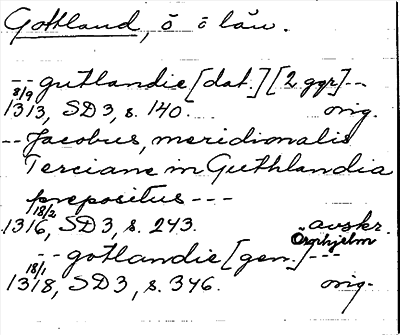 Gottland, ö ö län.
-- gutlandie [dat.] [2 ggr] --
8/9
1313, SD 3, s. 140. orig.
-- Jacobus, meridionalis
Terciane in Guthlandia
prepositus ---
18/2
1316, SD 3, s. 243. avskr.
Örnhjelm
-- gotlandie [gen.] ---
18/1
1318, SD 3, s. 346. orig.